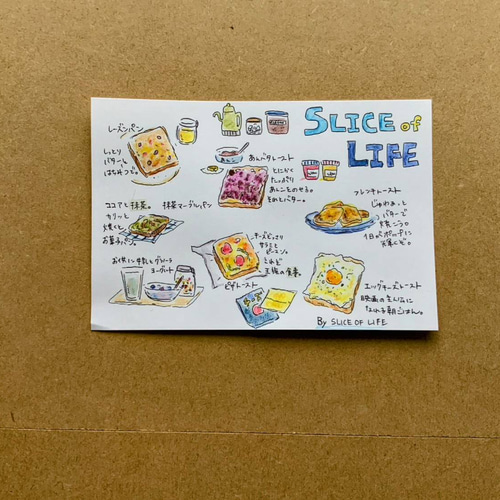 SLICE of
LIFE
レーズンパン
しっとり
バター&
はちみつで。
あんバタートースト
とにかく
たっぷり
あんこをのせる。
そのとバター。
フレンチトースト
じゅわぁっと
バターで
焼こう。
ココアと抹茶。
抹茶マーブルパン
カリッと
焼くと
お菓子パン。
お供に牛乳とグラノーラ
ヨーグルト
チーズどっさり
サラミと
ピーマン。
ピザトースト
エッグチーズトースト
映画の主人公に
なれる朝ごはん。
By SLICE OF LIFE